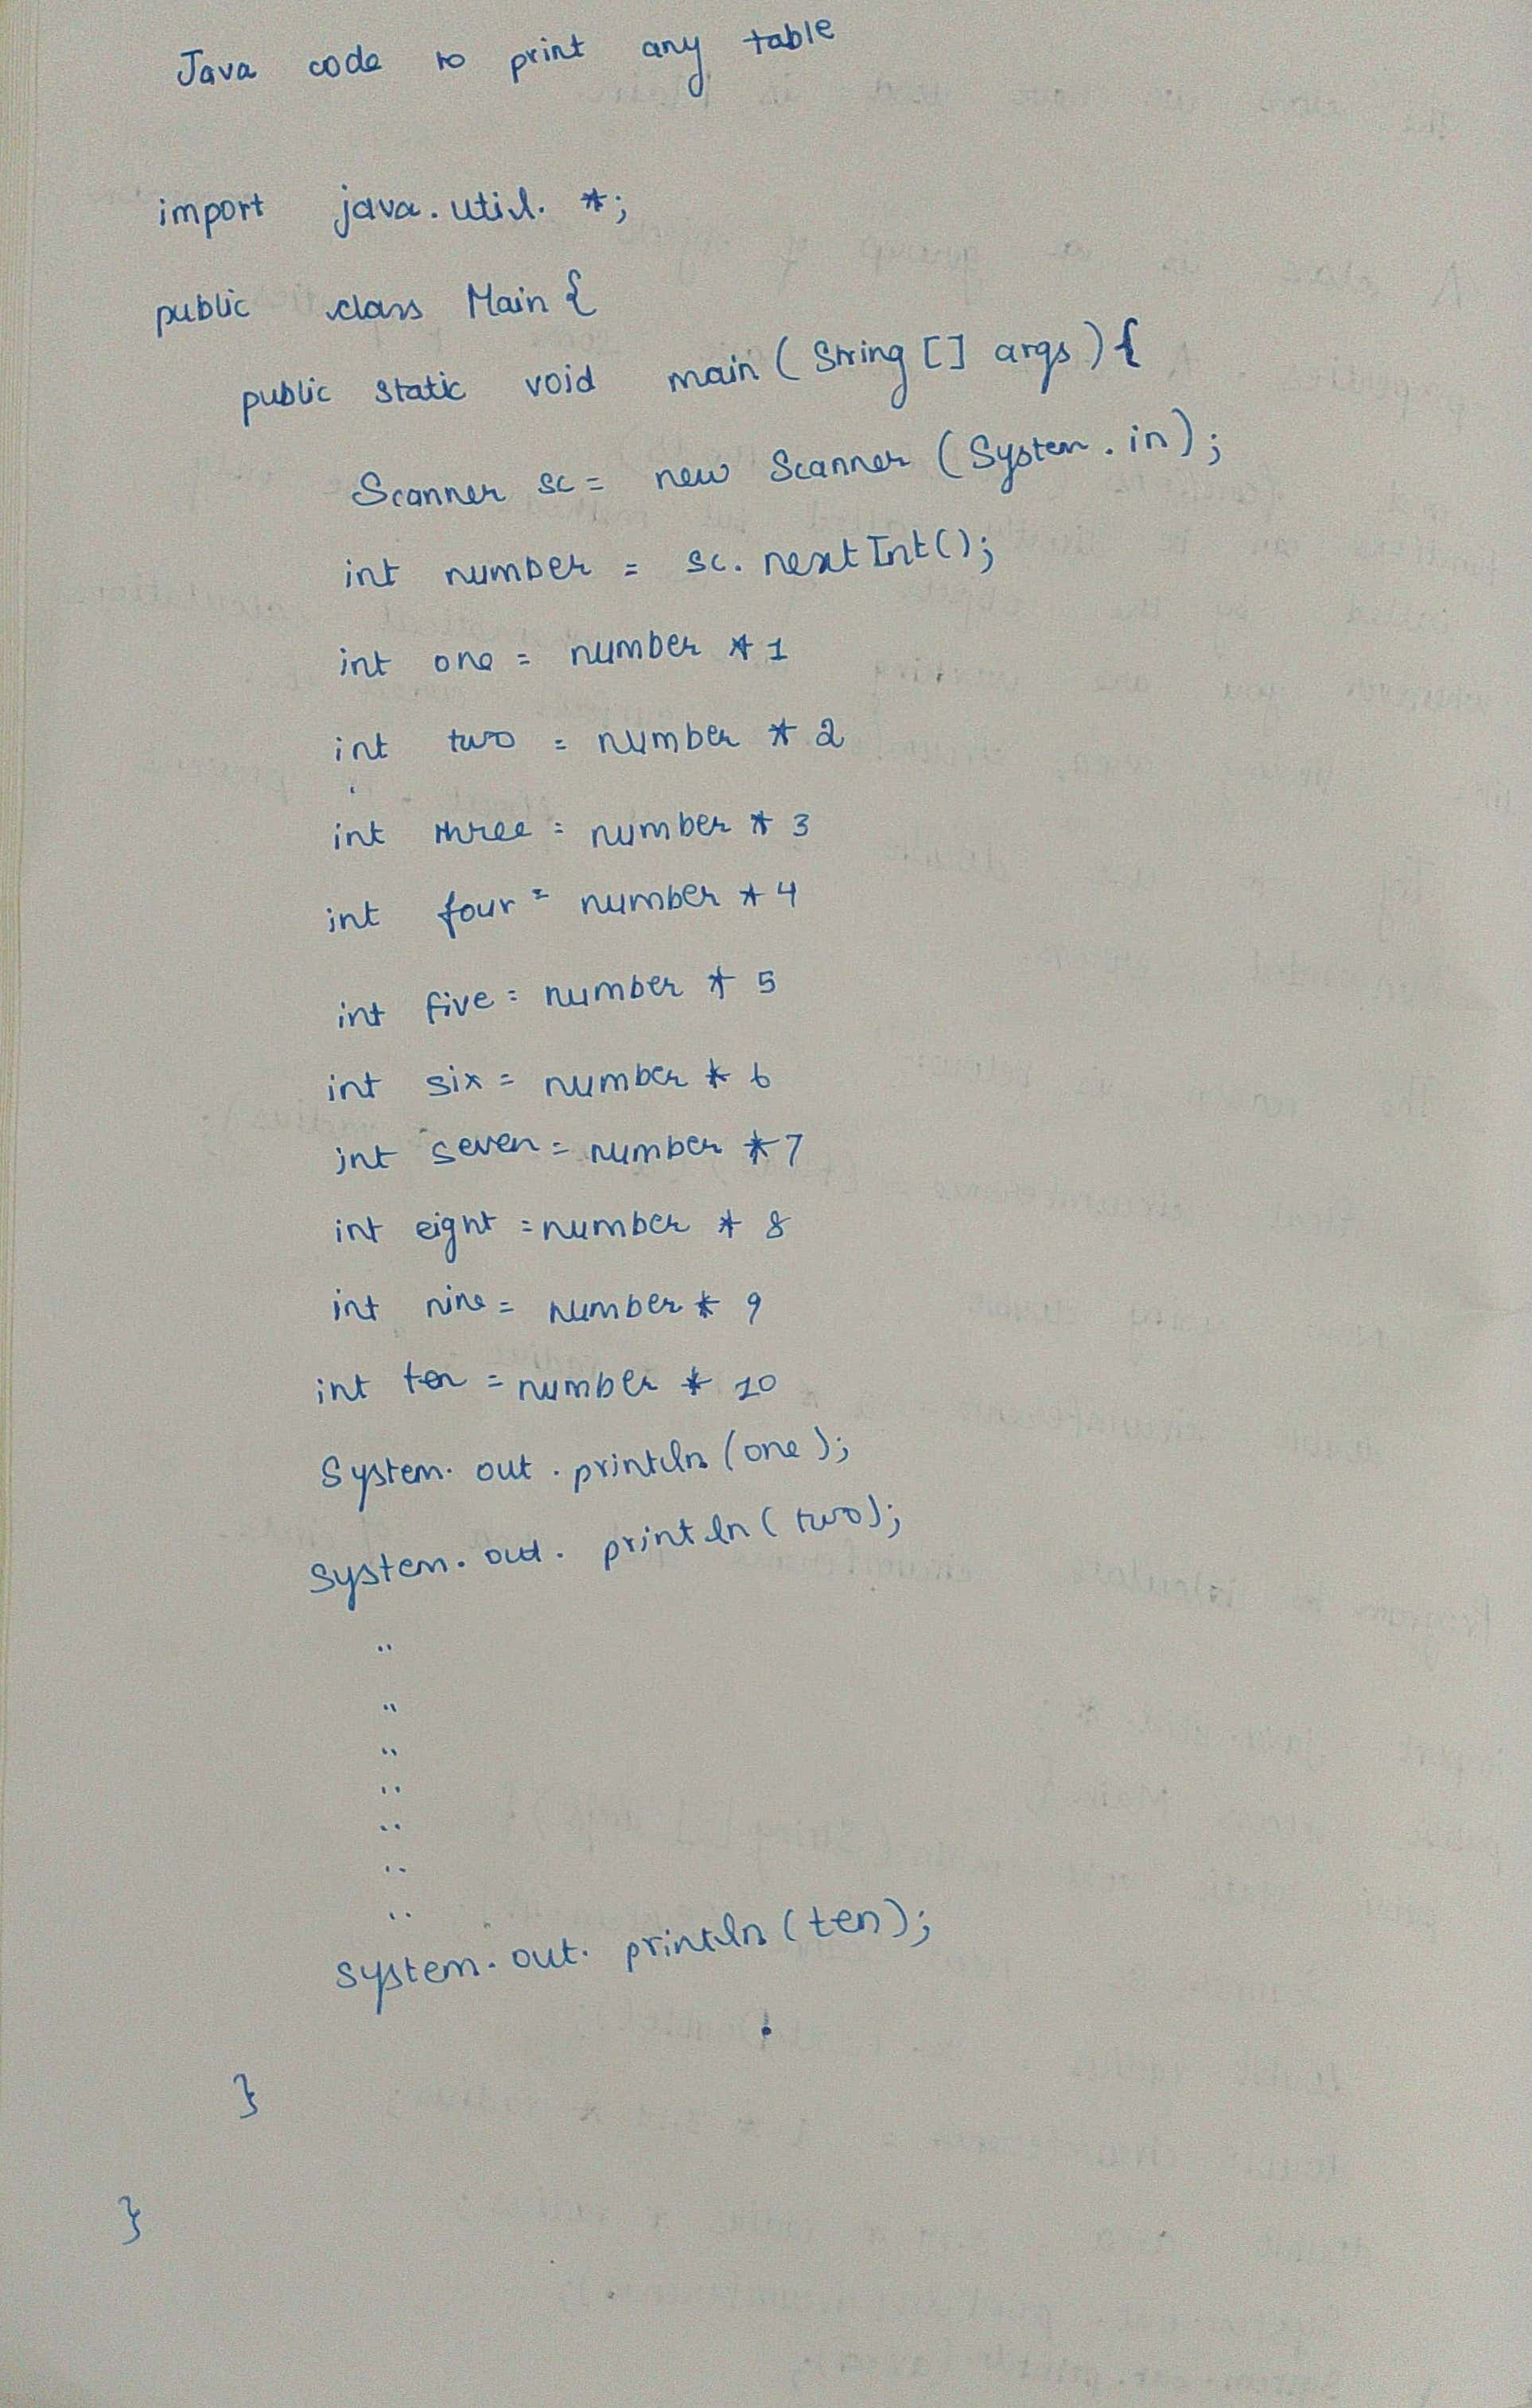 Java code to print any table
import java.util.*;
public class Main {
public static void main (String [] args) {
Scanner sc = new Scanner (System.in);
int number = sc.nextInt();
int one = number * 1
int two = number * 2
int three = number * 3
int four = number * 4
int five = number * 5
int six = number * 6
int seven = number * 7
int eight = number * 8
int nine = number * 9
int ten = number * 10
System.out.println (one);
System.out.println (two);
..
..
..
..
..
..
..
System.out.println (ten);
}
}